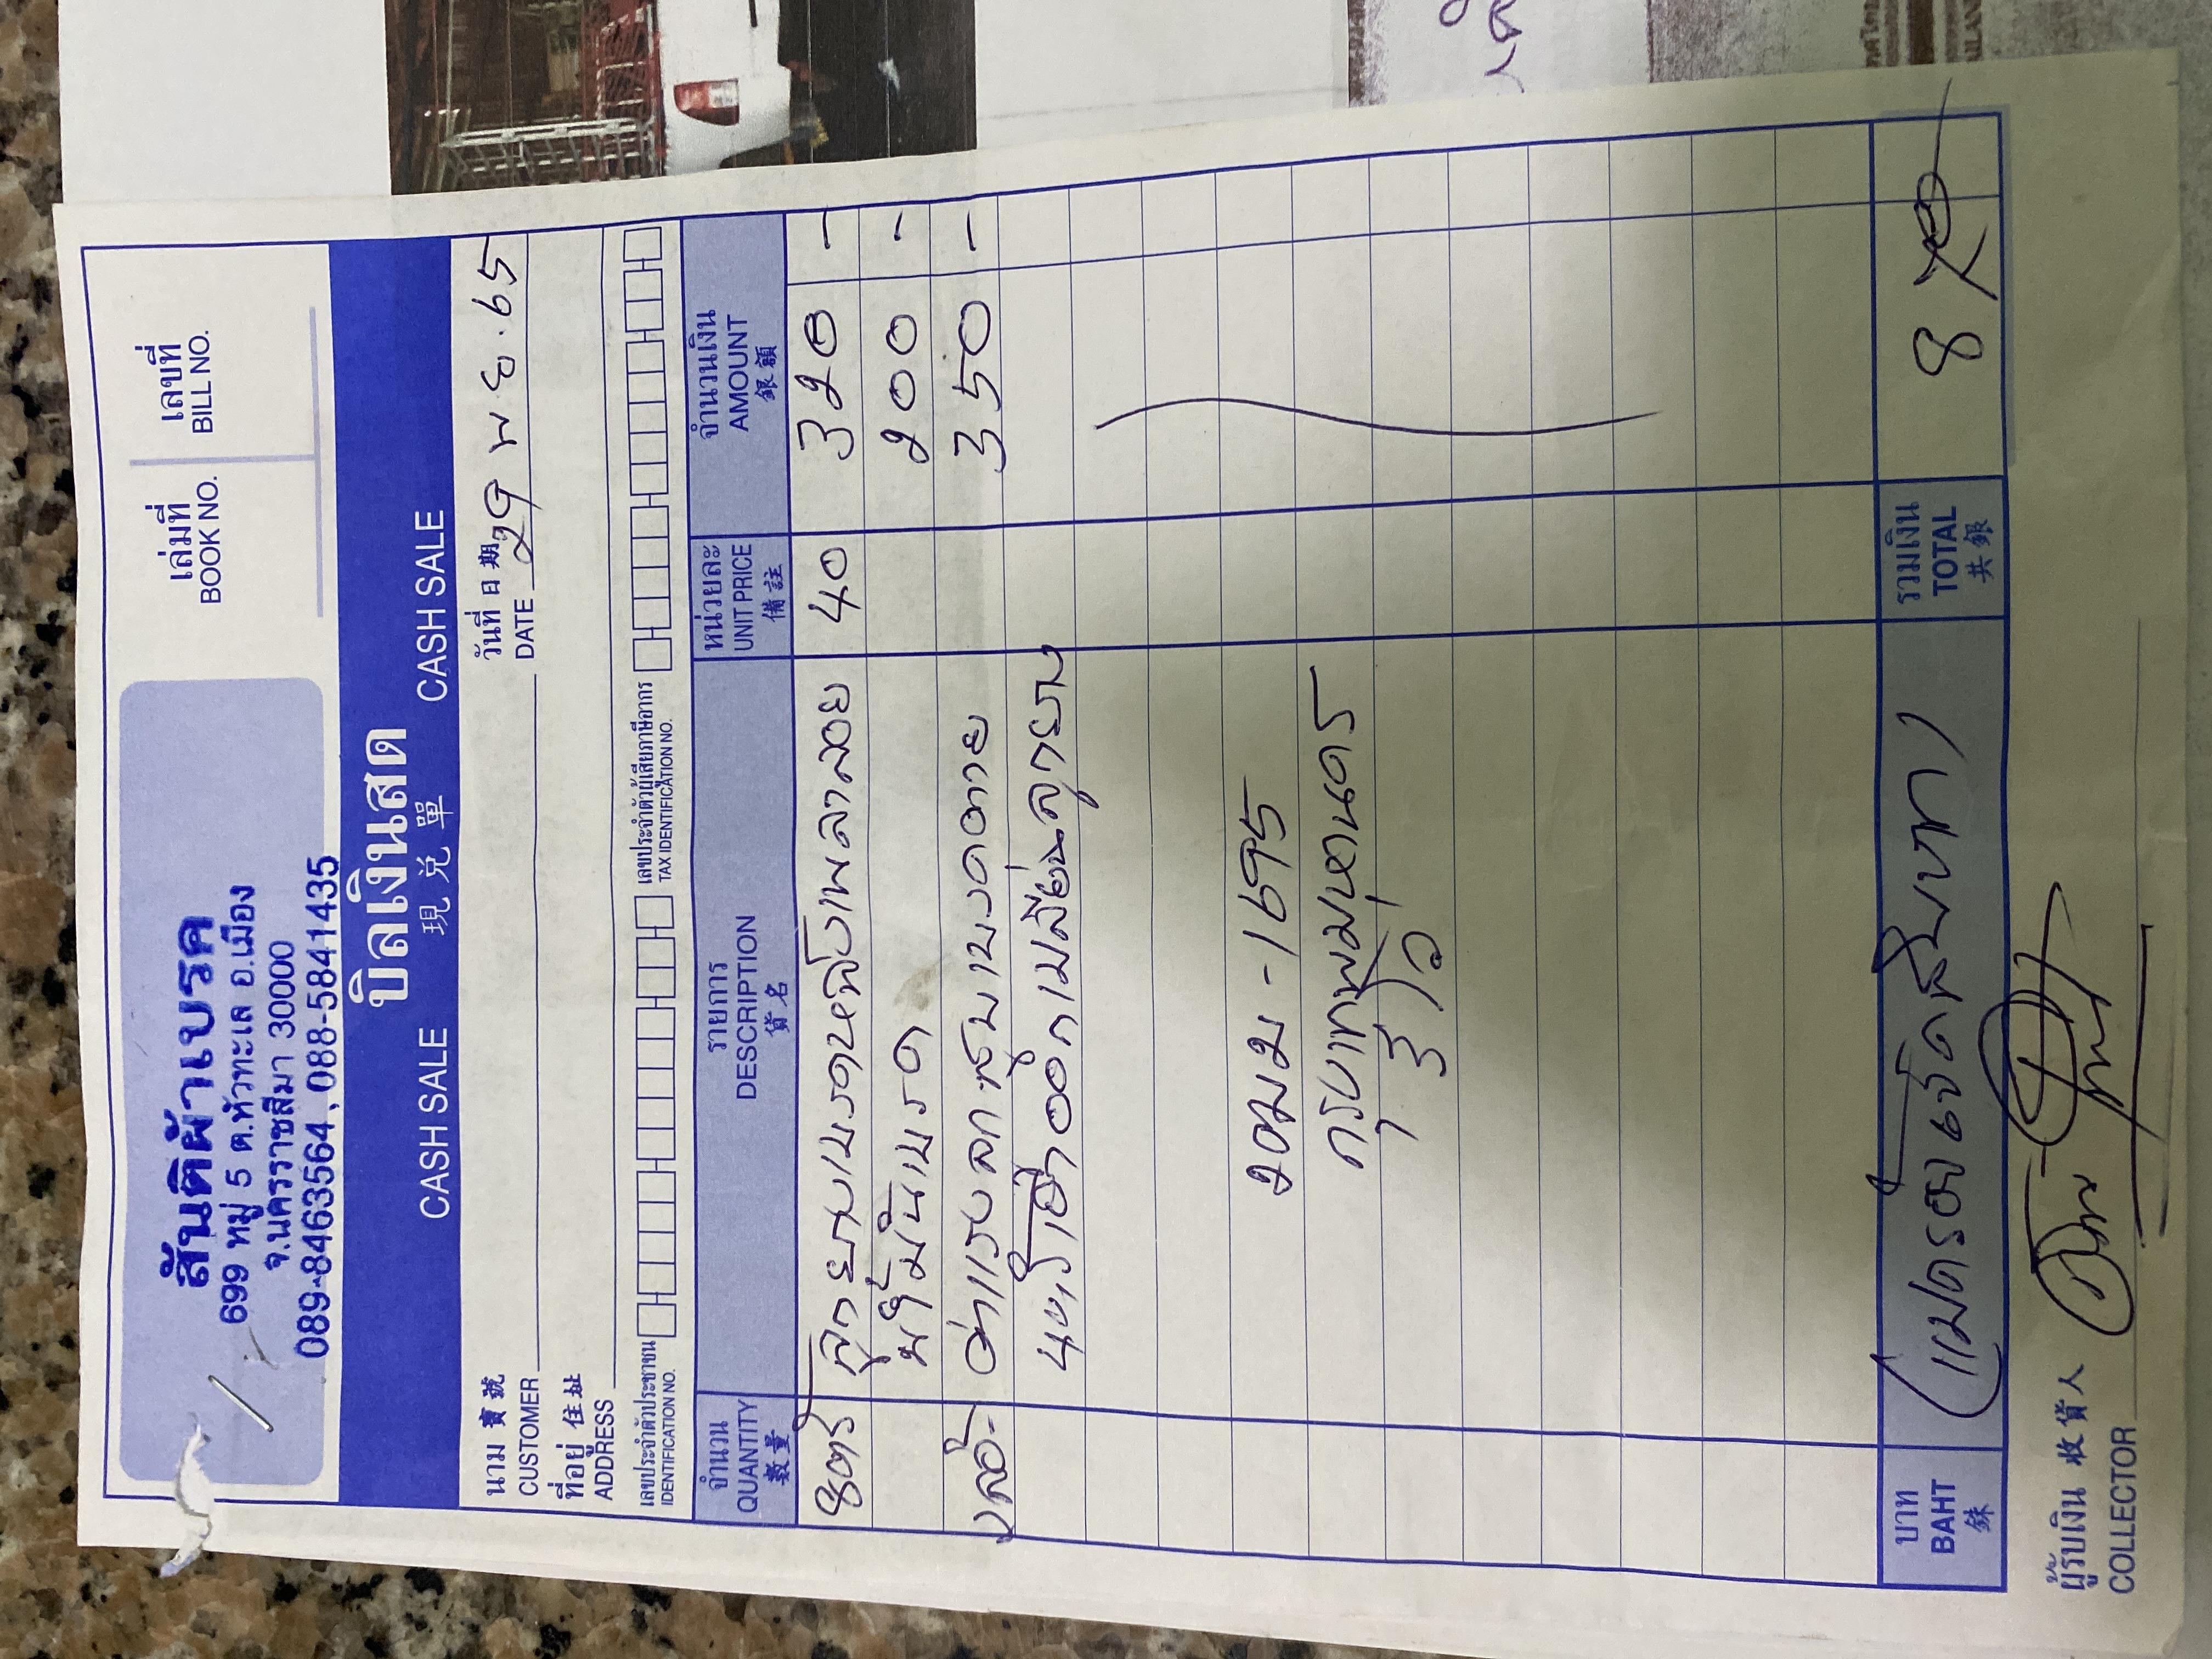 สันติผ้าเบรค
699 หมู่ 5 ต.หัวทะเล อ.เมือง
จ.นครราชสีมา 30000
089-8463564, 088-5841435
เล่มที่ เลขที่
BOOK NO. BILL NO.
บิลเงินสด
CASH SALE 現兌單 CASH SALE
นาม 寶號 วันที่ 日期 29 พ.ย. 65
CUSTOMER DATE
ที่อยู่ 住址
ADDRESS
เลขประจำตัวประชาชน เลขประจำตัวผู้เสียภาษีอากร
IDENTIFICATION NO. TAX IDENTIFICATION NO.
จำนวน รายการ หน่วยละ จำนวนเงิน
QUANTITY DESCRIPTION UNIT PRICE AMOUNT
數量 貨名 備註 銀額
8 ตัว ลูกยางเบรคหลังเพลาลอย 40 320 -
น้ำมันเบรค 200 -
ค่าแรงลากซุบเบรคตาย 350 -
เปลี่ยนลูกยาง
20 มม -1695
กรุงเทพมหานคร
บาท แปดร้อยเจ็ดสิบบาท รวมเงิน 870
BAHT TOTAL
銖 共銀
ผู้รับเงิน 收貨人
COLLECTOR